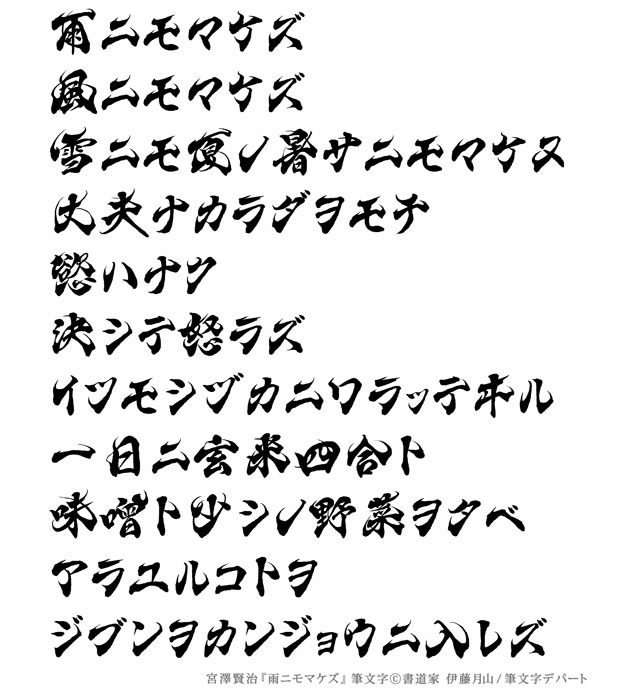 雨ニモマケズ
風ニモマケズ
雪ニモ夏ノ暑サニモマケヌ
丈夫ナカラダヲモチ
慾ハナク
決シテ怒ラズ
イツモシヅカニワラッテヰル
一日ニ玄米四合ト
味噌ト少シノ野菜ヲタベ
アラユルコトヲ
ジブンヲカンジョウニ入レズ
宮澤賢治『雨ニモマケズ』 筆文字©書道家 伊藤月山 / 筆文字デパート